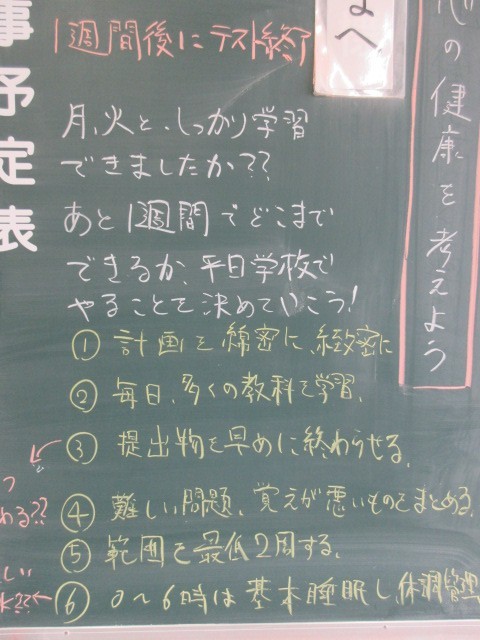 事予定表
1週間後にテスト終了
へ
心の健康を考えよう
月、火と、しっかり学習
できましたか??
あと1週間でどこまで
できるか、平日学校で
やることを決めていこう!
① 計画を綿密に、緻密に
② 毎日、多くの教科を学習、
③ 提出物を早めに終わらせる。
④ 難しい問題、覚えが悪いものをまとめる。
⑤ 範囲を最低2周する、
⑥ 0〜6時は基本睡眠し、体調管理
わる??
しい